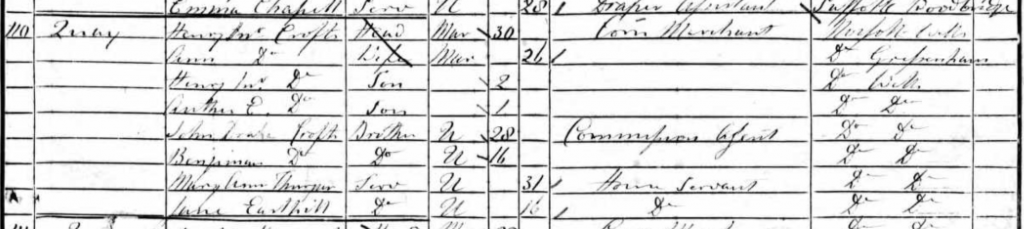 Emma Chapell Serv U 28 Draper Assistant Suffolk Woodbridge
110 Quay Henry Crofts Head Mar 30 Corn Merchant Norfolk Wells
Ann Do Wife Mar 26 Do Gressenham
Henry Do Son 2 Do Wells
Arthur E. Do Son 1 Do Do
John Crofts Brother U 28 Commission Agent Do Do
Benjiman Do Do U 16 Do Do
Mary Ann Serv U 31 House Servant Do Do
A Jane Do U 16 Do Do Do